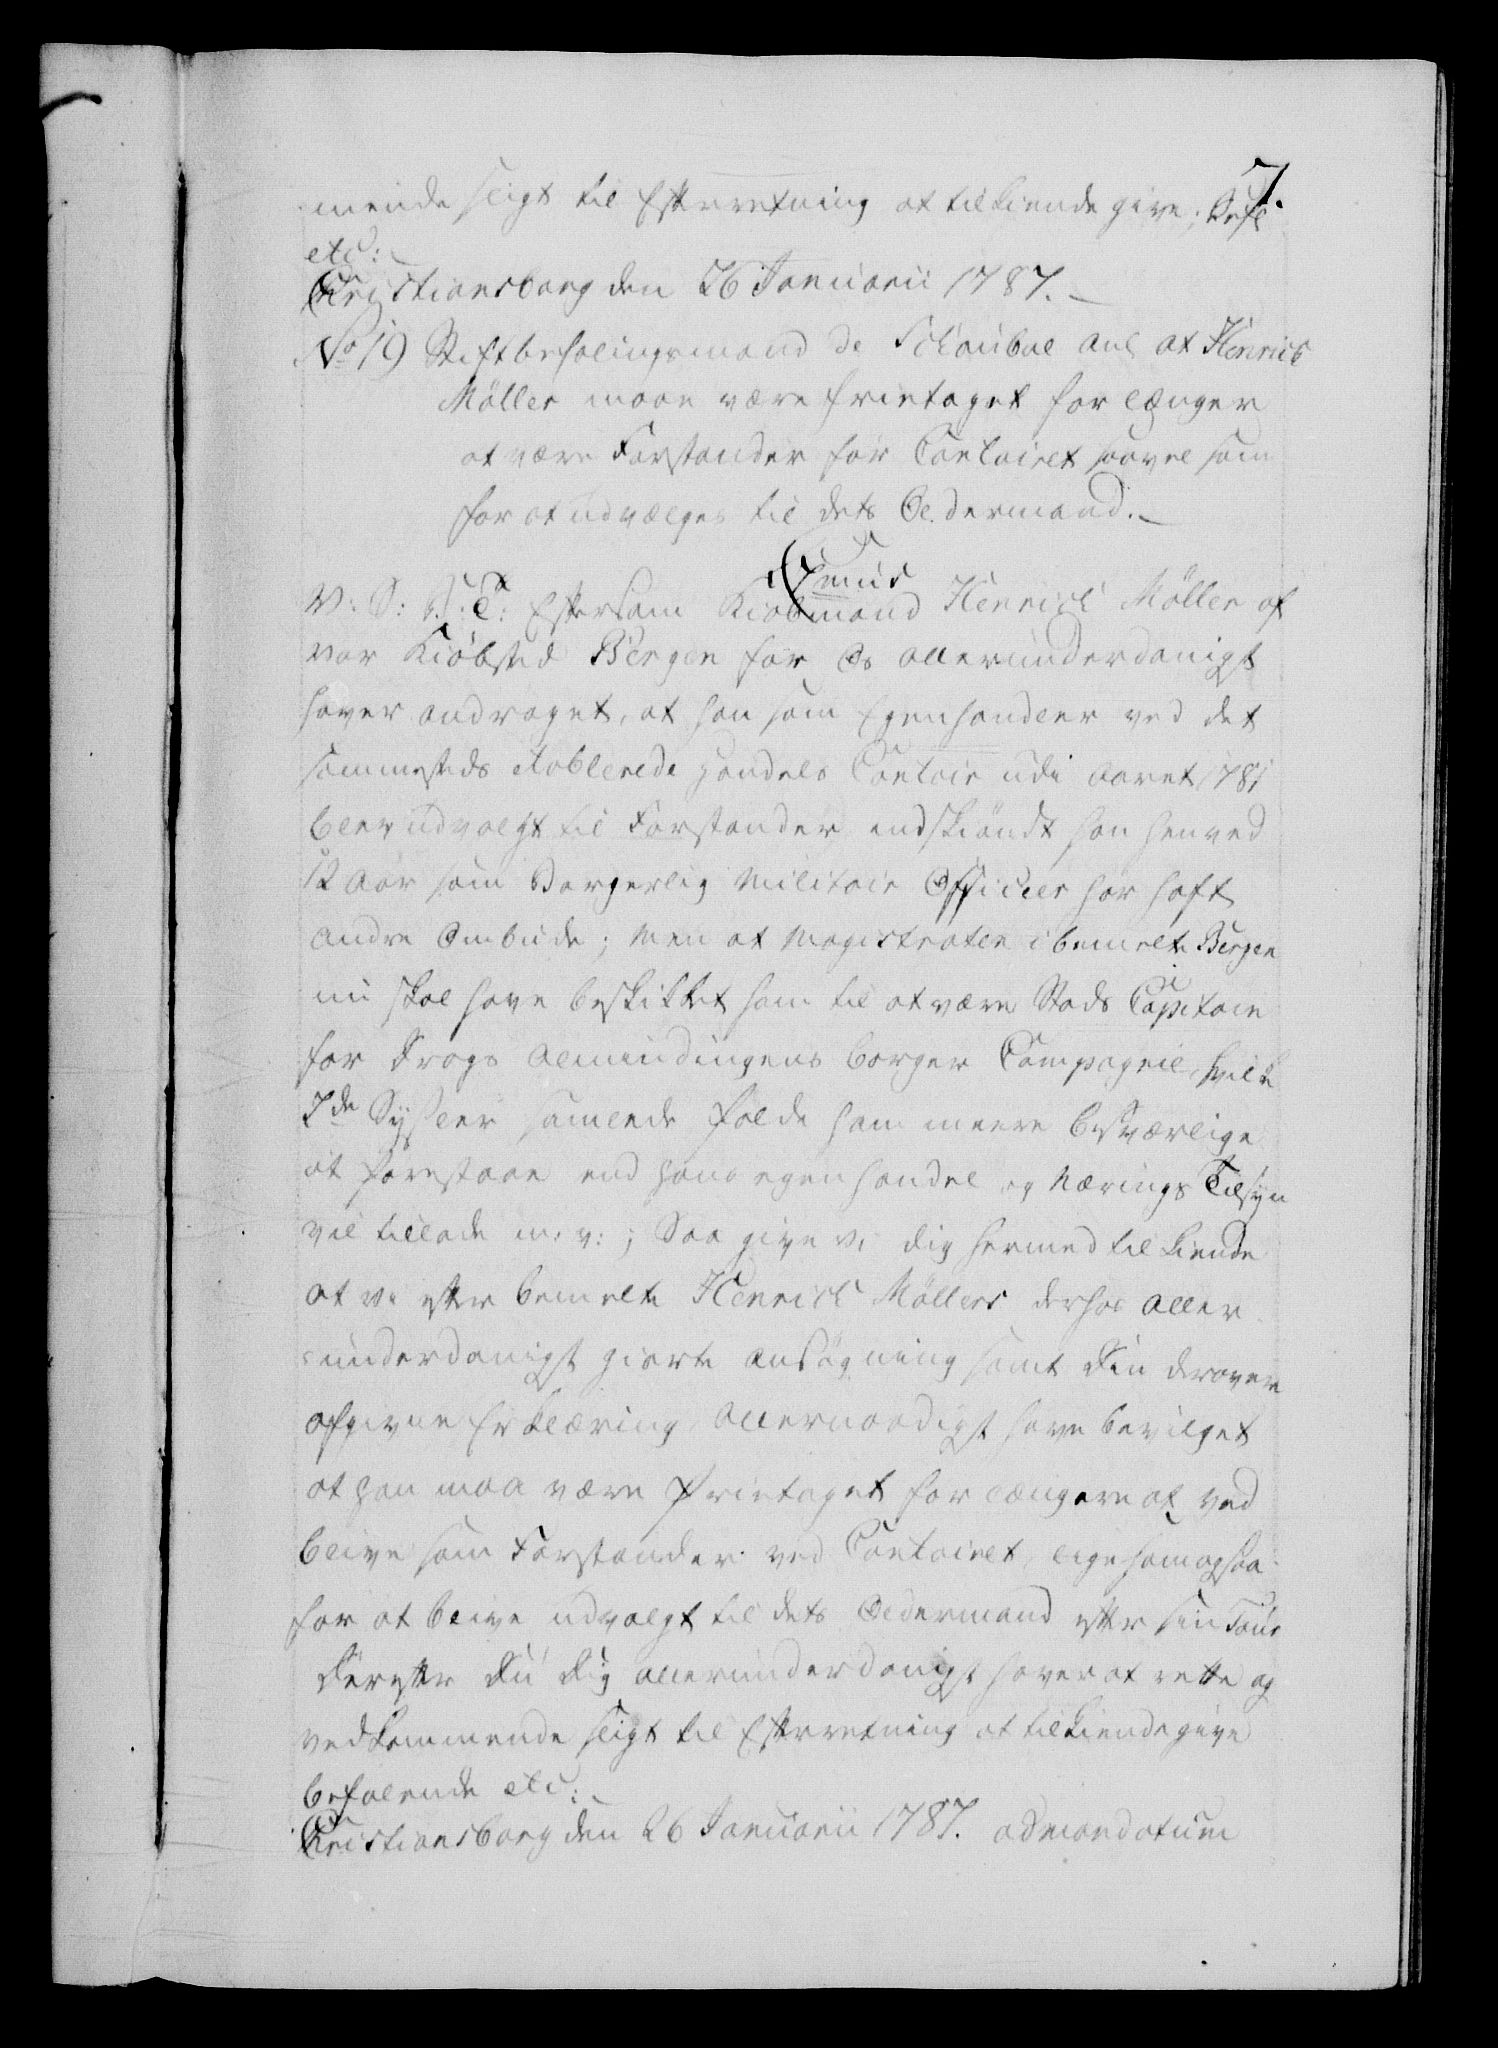 7.
mende sligt til Efterretning at tilkiende give; Befl
etc:
Christiansborg den 26 Januarii 1787.
No 19 Stiftbefalingsmand de Schouboe anl at Henrich
Möller maae være frietaget for længer
at være Forstander for Contoiret saavel som
for at udvælges til dets Oldermand.
V: S: G: T: Eftersom Kiöbmand Henrich Möller af
vor Kiöbsted Bergen for Os allerunderdanigst
haver andraget, at han som Egenhandler ved det
sammesteds etablerede Handels Contoir udi Aaret 1781
blev udvalgt til Forstander endskiöndt han henved
12 Aar som Borgerlig Militair Officier har haft
andre Ombude; Men at Magistraten i bemelte Bergen
nu skal have beskikket ham til at være Stads Capitain
for Frags Almindingens borger Compagnie, hvilke
2de Sysler samlede falde ham meere besværlige
at forestaae end hans egen handel og Nærings Tilsyn
vil tillade m: v:; Saa give vi dig hermed tilkiende
at vi efter bemelte Henrich Möllers derhos aller
underdanigst giorte Ansögning samt Din derover
afgivne Erklæring Allernaadigst have bevilget
at han maa være frietaget for længere at ved
blive som Forstander ved Contoiret, ligesom ogsaa
for at blive udvalgt til dets Oldermand efter sin Tour
Derefter Du Dig allerunderdanigst haver at rette og
vedkommende sligt til Efterretning at tilkiendegive
befalende etc:
Christiansborg den 26 Januarii 1787. ad mandatum